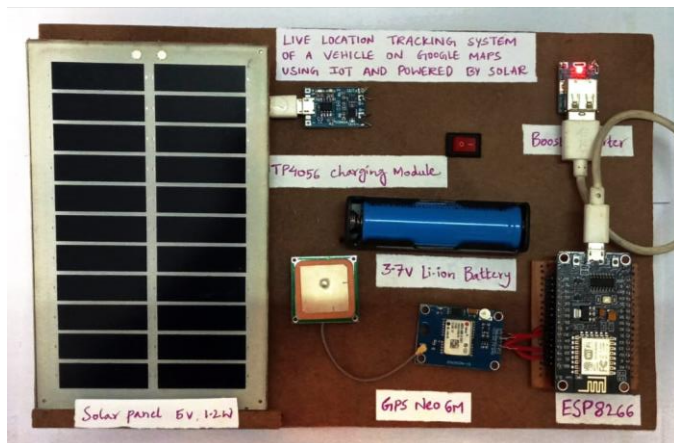 LIVE LOCATION TRACKING SYSTEM
OF A VEHICLE ON GOOGLE MAPS
USING IOT AND POWERED BY SOLAR
TP4056 Charging Module
3.7V Li-ion Battery
Solar panel 5V, 1.2W
GPS Neo 6M
ESP8266